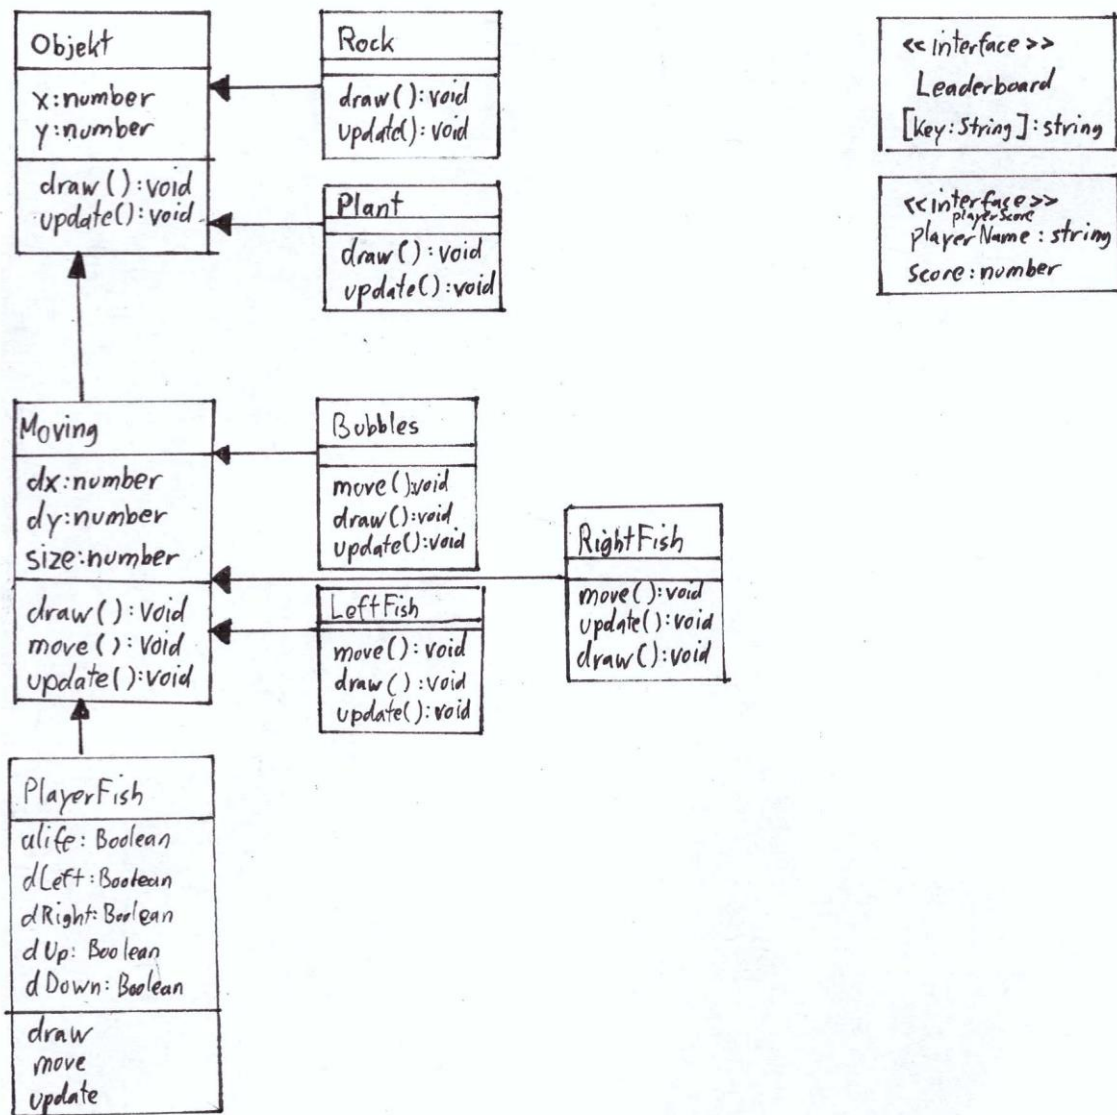 Objekt
x:number
y:number
draw():void
update():void
Rock
draw():void
update():void
Plant
draw():void
update():void
<<interface>>
Leaderboard
[Key:String]:string
<<interface>>
playerScore
playerName:string
score:number
Moving
dx:number
dy:number
size:number
draw():void
move():void
update():void
Bubbles
move():void
draw():void
update():void
LeftFish
move():void
draw():void
update():void
RightFish
move():void
update():void
draw():void
PlayerFish
alife:Boolean
dLeft:Boolean
dRight:Boolean
dUp:Boolean
dDown:Boolean
draw
move
update